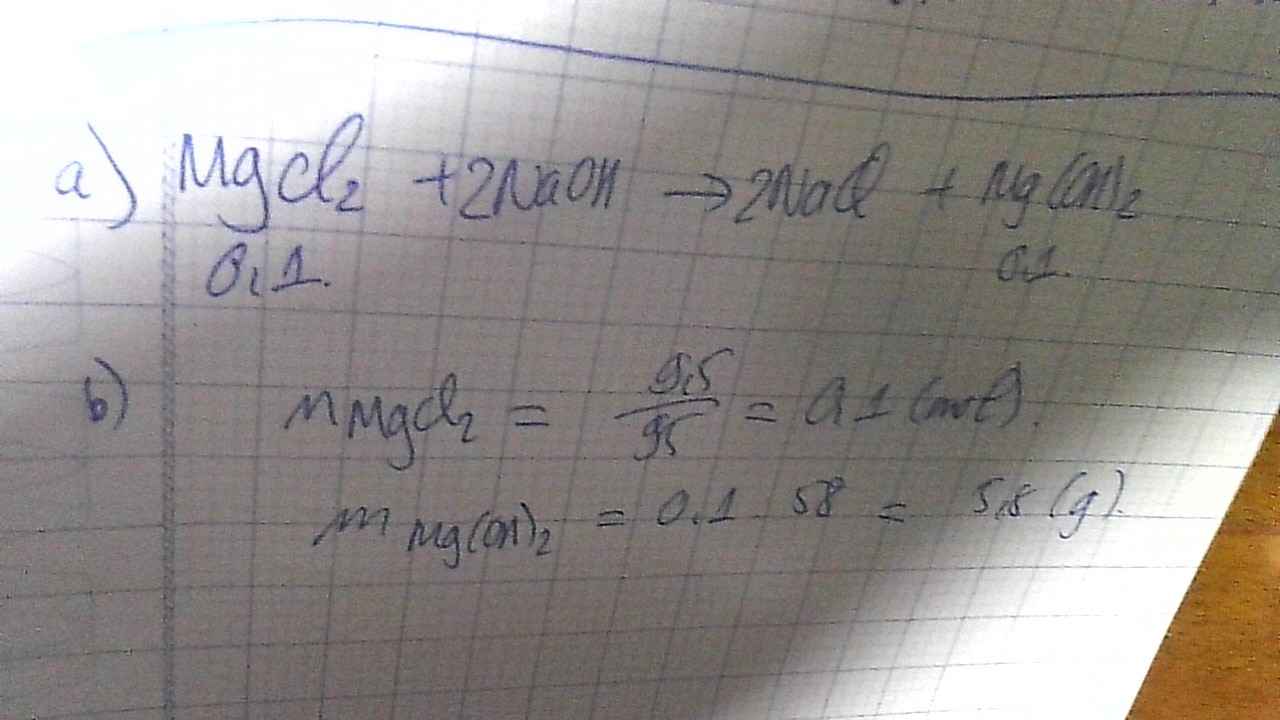 a) MgCl₂ + 2NaOH → 2NaCl + Mg(OH)₂
0,1. 0,1.
b) nMgCl₂ = 9,5/95 = 0,1 (mol).
m Mg(OH)₂ = 0,1 58 = 5,8 (g).